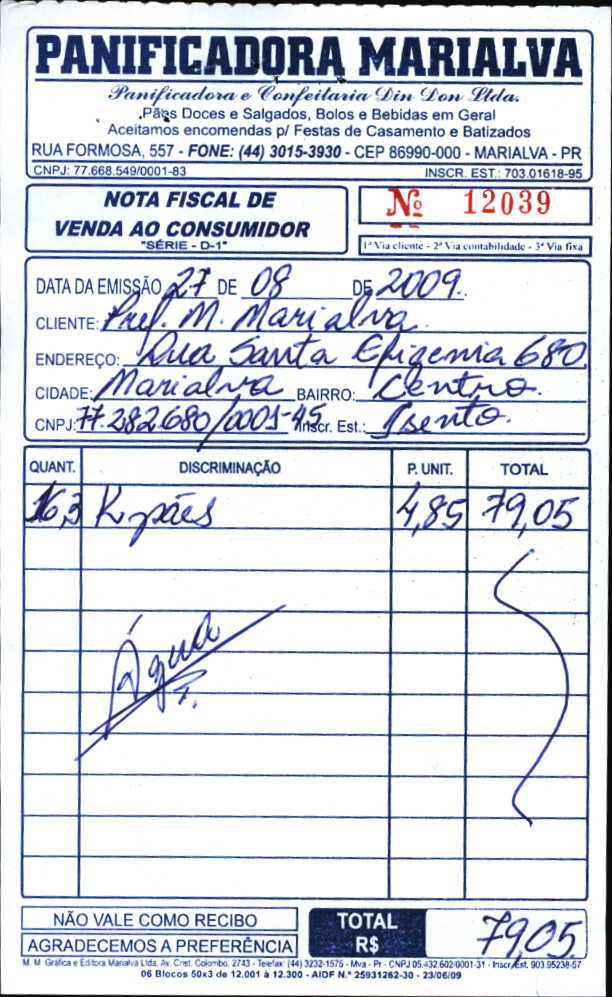 PANIFICADORA MARIALVA
Panificadora e Confeitaria Din Don Ltda.
Pães Doces e Salgados, Bolos e Bebidas em Geral
Aceitamos encomendas p/ Festas de Casamento e Batizados
RUA FORMOSA, 557 - FONE: (44) 3015-3930 - CEP 86990-000 - MARIALVA - PR
CNPJ: 77.668.549/0001-83 INSCR. EST.: 703.01618-95
NOTA FISCAL DE
VENDA AO CONSUMIDOR
"SÉRIE - D-1"
Nº 12039
1ª Via cliente - 2ª Via contabilidade - 3ª Via fixa
DATA DA EMISSÃO 27 DE 08 DE 2009.
CLIENTE: Pref. M. Marialva
ENDEREÇO: Rua Santa Efigenia 680
CIDADE: Marialva BAIRRO: Centro.
CNPJ: 77.282.680/0001-45 Inscr. Est.: Isento.
QUANT. DISCRIMINAÇÃO P. UNIT. TOTAL
16,3 K pães 4,85 79,05
Água
NÃO VALE COMO RECIBO
AGRADECEMOS A PREFERÊNCIA
TOTAL
R$ 79,05
M. M. Gráfica e Editora Marialva Ltda. Av. Crist. Colombo, 2743 - Telefax: (44) 3232-1575 - Mva - Pr - CNPJ 05.432.602/0001-31 - Inscr. Est. 903.95238-57
06 Blocos 50x3 de 12.001 à 12.300 - AIDF N.º 25931262-30 - 23/06/09